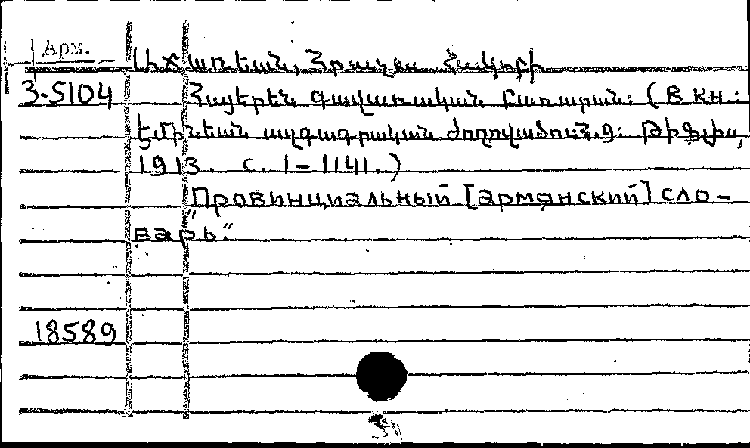 Арм.
Աճառեան, Հրաչեա Հակոբի
3-5104
Հայերէն գաւառական բառարան: (В кн.:
Էմինեան ազգագրական ժողովածու. հ. 9: Թիֆլիս,
1913. с. 1-1141.)
"Провинциальный [армянский] сло-
варь."
18589